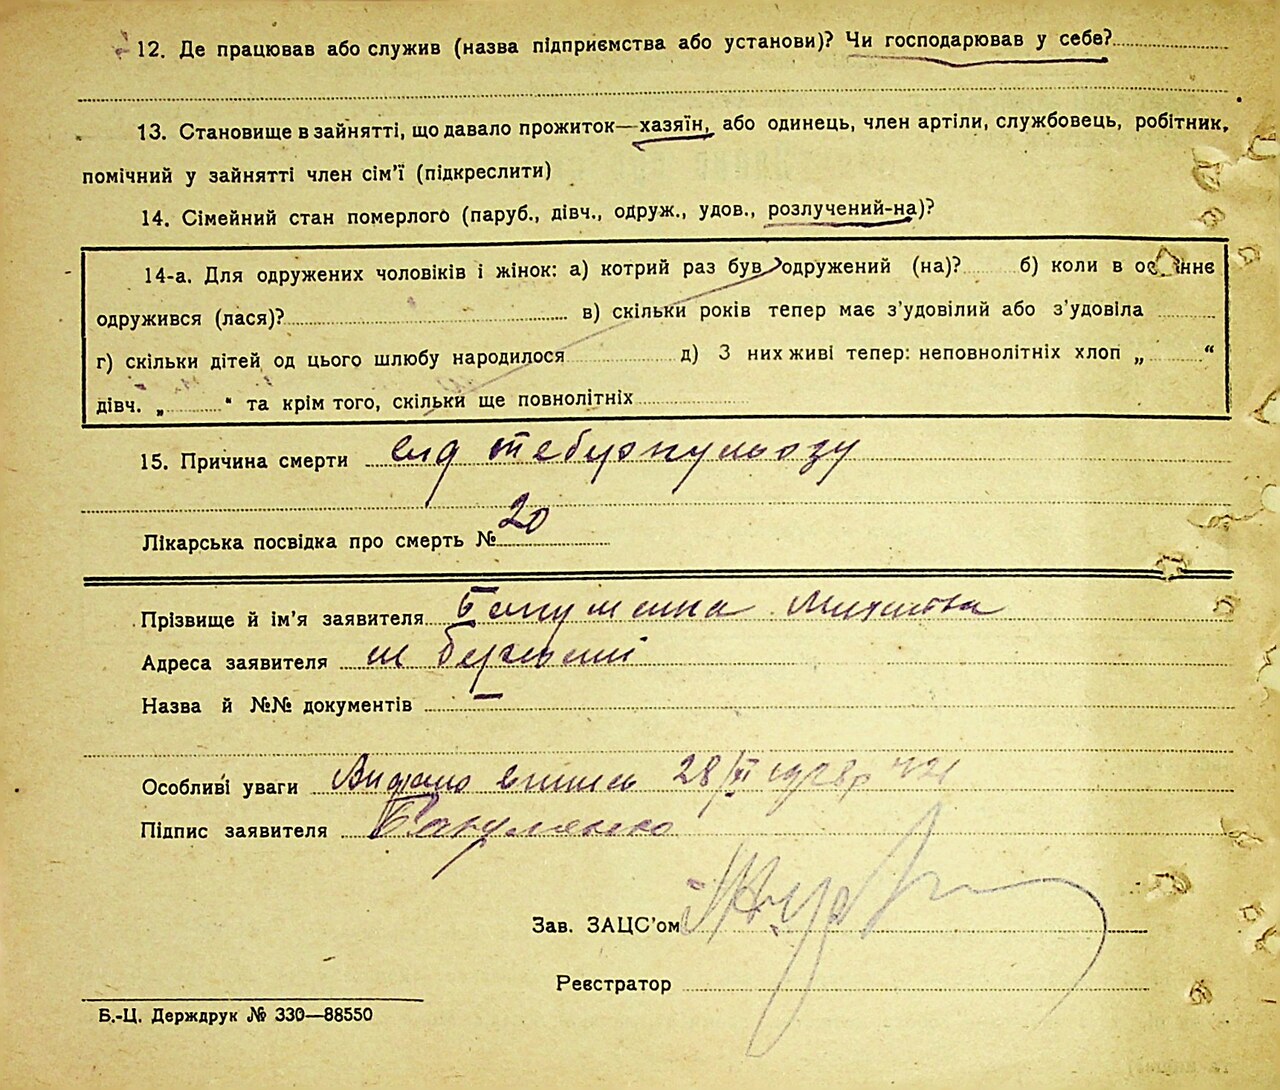 12. Де працював або служив (назва підприємства або установи)? Чи господарював у себе?
13. Становище в зайнятті, що давало прожиток—хазяїн, або одинець, член артілі, службовець, робітник,
помічний у зайнятті член сім'ї (підкреслити)
14. Сімейний стан померлого (паруб., дівч., одруж., удов., розлучений-на)?
14-а. Для одружених чоловіків і жінок: а) котрий раз був одружений (на)? б) коли в останнє
одружився (лася)? в) скільки років тепер має з'удовілий або з'удовіла
г) скільки дітей од цього шлюбу народилося д) З них живі тепер: неповнолітніх хлоп „ “
дівч. „ “ та крім того, скільки ще повнолітніх
15. Причина смерти від теберкульозу
Лікарська посвідка про смерть № 20
Прізвище й ім'я заявителя
Адреса заявителя
Назва й №№ документів —
Особливі уваги Видано 28/XI 1928р
Підпис заявителя
Зав. ЗАЦС'ом
Реєстратор
Б.-Ц. Держдрук № 330—88550